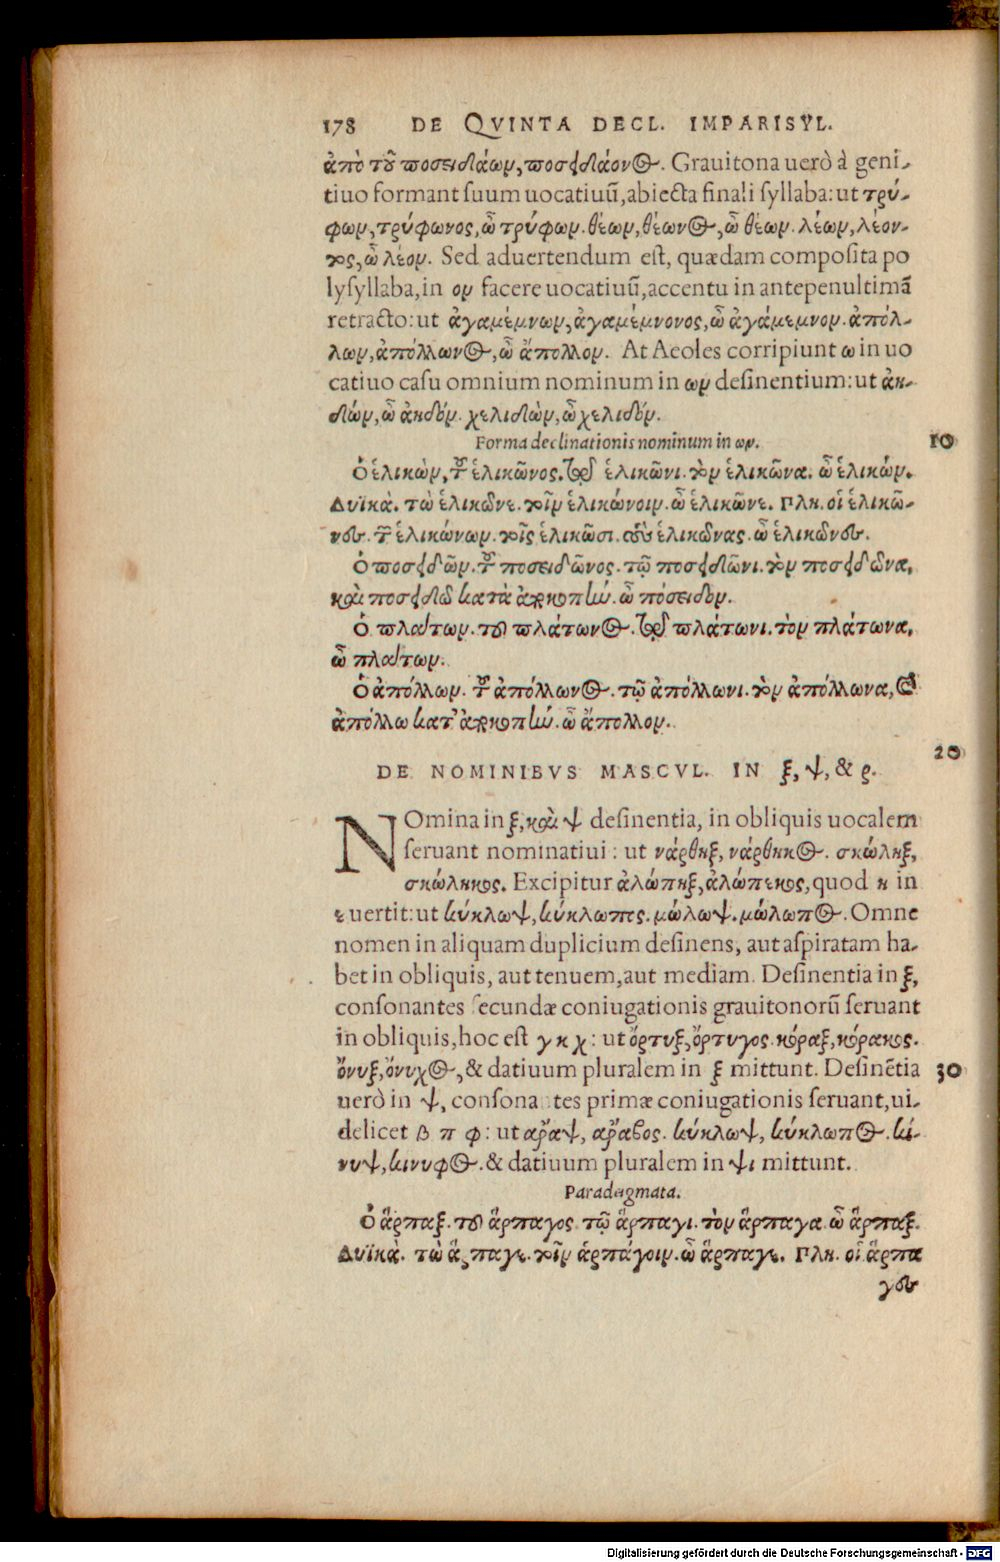 178 DE QVINTA DECL. IMPARISYL.
ἀπὸ τοῦ ποσειδάων, ποσειδάονος. Grauitona uerò à geni-
tiuo formant suum uocatiuũ, abiecta finali syllaba: ut τρύ-
φων, τρύφωνος, ὦ τρύφων. θέων, θέωνος, ὦ θέων. λέων, λέον-
τος, ὦ λέον. Sed aduertendum est, quædam composita po
lysyllaba, in ον facere uocatiuũ, accentu in antepenultimã
retracto: ut ἀγαμέμνων, ἀγαμέμνονος, ὦ ἀγάμεμνον. ἀπόλ-
λων, ἀπόλλωνος, ὦ ἄπολλον. At Aeoles corripiunt ω in uo
catiuo casu omnium nominum in ων desinentium: ut ἀη-
δών, ὦ ἀηδόν. χελιδὼν, ὦ χελιδόν.
Forma declinationis nominum in ων. 10
Ὁ ἑλικὼν, τοῦ ἑλικῶνος. τῷ ἑλικῶνι. τὸν ἑλικῶνα. ὦ ἑλικών.
Δυϊκὰ. τὼ ἑλικῶνε. τοῖν ἑλικώνοιν. ὦ ἑλικῶνε. Πλη. οἱ ἑλικῶ-
νες. τῶν ἑλικώνων. τοῖς ἑλικῶσι. τοὺς ἑλικῶνας. ὦ ἑλικῶνες.
Ὁ ποσειδῶν. τοῦ ποσειδῶνος. τῷ ποσειδῶνι. τὸν ποσειδῶνα,
καὶ ποσειδῶ κατὰ ἀποκοπὴν. ὦ πόσειδον.
Ὁ πλάτων. τοῦ πλάτωνος. τῷ πλάτωνι. τὸν πλάτωνα,
ὦ πλάτων.
Ὁ ἀπόλλων. τοῦ ἀπόλλωνος. τῷ ἀπόλλωνι. τὸν ἀπόλλωνα, καὶ
ἀπόλλω κατ' ἀποκοπὴν. ὦ ἄπολλον.
20
DE NOMINIBVS MASCVL. IN ξ, ψ, & ρ.
NOmina in ξ, καὶ ψ desinentia, in obliquis uocalem
seruant nominatiui: ut νάρθηξ, νάρθηκος. σκώληξ,
σκώληκος. Excipitur ἀλώπηξ, ἀλώπεκος, quod η in
ε uertit: ut κύκλωψ, κύκλωπες. μώλωψ. μώλωπος. Omne
nomen in aliquam duplicium desinens, aut aspiratam ha-
bet in obliquis, aut tenuem, aut mediam. Desinentia in ξ,
consonantes secundæ coniugationis grauitonorũ seruant
in obliquis, hoc est γ κ χ: ut ὄρτυξ, ὄρτυγος. κόραξ, κόρακος.
ὄνυξ, ὄνυχος, & datiuum pluralem in ξ mittunt. Desinẽtia 30
uerò in ψ, consonantes primæ coniugationis seruant, ui-
delicet β π φ: ut ἄραψ, ἄραβος. κύκλωψ, κύκλωπος. κί-
νυψ, κινυφος. & datiuum pluralem in ψι mittunt.
Paradegmata.
Ὁ ἅρπαξ. τοῦ ἅρπαγος. τῷ ἅρπαγι. τὸν ἅρπαγα. ὦ ἅρπαξ.
Δυϊκὰ. τὼ ἅρπαγε. τοῖν ἁρπάγοιν. ὦ ἅρπαγε. Πλη. οἱ ἅρπα
γες
Digitalisierung gefördert durch die Deutsche Forschungsgemeinschaft - DFG